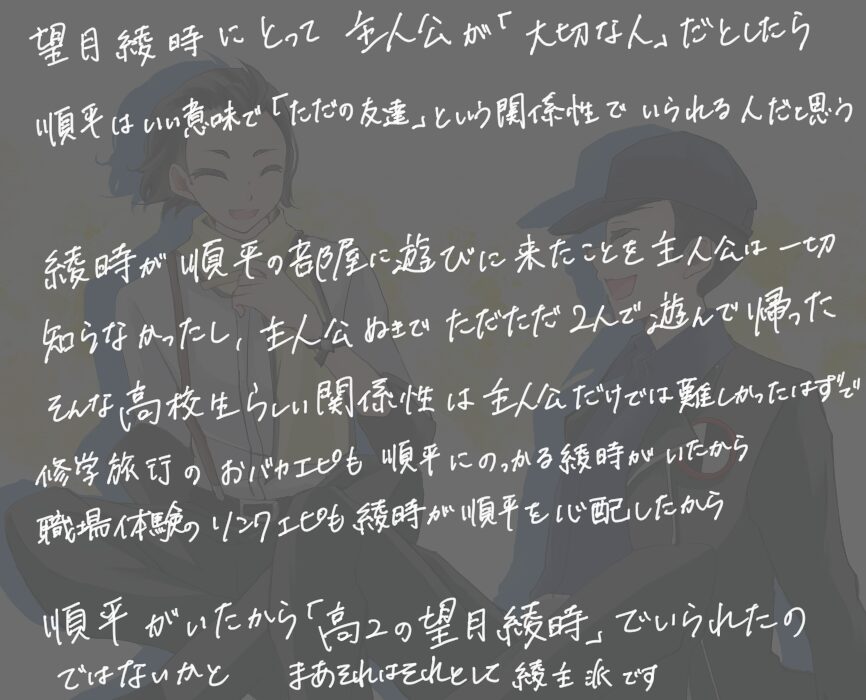 望月綾時にとって 主人公が「大切な人」だとしたら
順平はいい意味で「ただの友達」という関係性でいられる人だと思う
綾時が順平の部屋に遊びに来たことを主人公は一切
知らなかったし、主人公ぬきでただただ2人で遊んで帰った
そんな高校生らしい関係性は主人公だけでは難しかったはずで
修学旅行のおバカエピも順平にのっかる綾時がいたから
職場体験のリンクエピも綾時が順平を心配したから
順平がいたから「高2の望月綾時」でいられたの
ではないかと まあそれはそれとして綾主派です